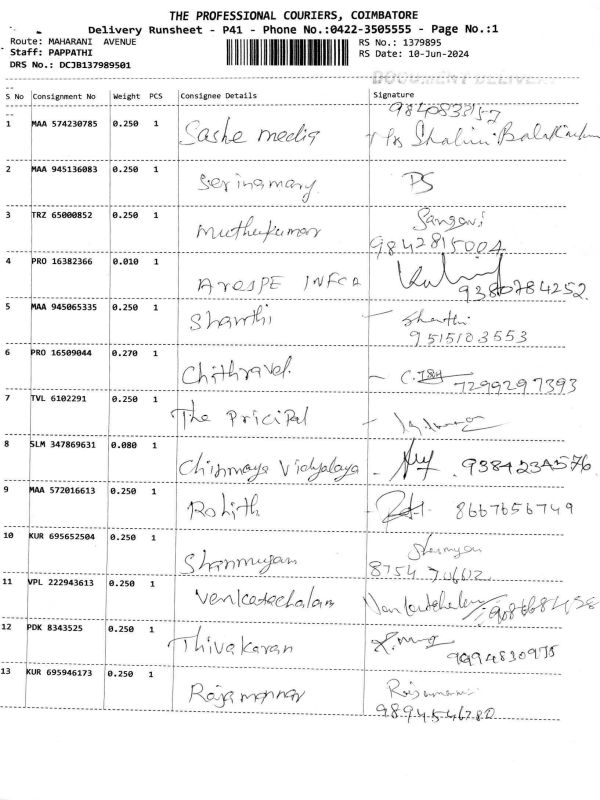 THE PROFESSIONAL COURIERS, COIMBATORE
Delivery Runsheet - P41 - Phone No.:0422-3505555 - Page No.:1
Route: MAHARANI AVENUE RS No.: 1379895
Staff: PAPPATHI RS Date: 10-Jun-2024
DRS No.: DCJB137989501
DOCUMENT DELIVERY
S No Consignment No Weight PCS Consignee Details Signature
9840838157
1 MAA 574230785 0.250 1 Sashe media Shalini
2 MAA 945136083 0.250 1 Serinamary PS
3 TRZ 65000852 0.250 1 Muthukumar Sangavi
9842815004
4 PRO 16382366 0.010 1 INFCA
9380784252
5 MAA 945065335 0.250 1 Shanthi Shanthi
9515103553
6 PRO 16509044 0.270 1 Chithravel.
7299297393
7 TVL 6102291 0.250 1 The Pricipal
8 SLM 347869631 0.080 1 Chinmaya Vidyalaya
9 MAA 572016613 0.250 1 Rohith 8667656749
10 KUR 695652504 0.250 1 Shanmugam
11 VPL 222943613 0.250 1 Venkatachalam
12 PDK 8343525 1 Thivakaran
9994830975
13 KUR 695946173 0.250 1 Rajamannar
9894546780